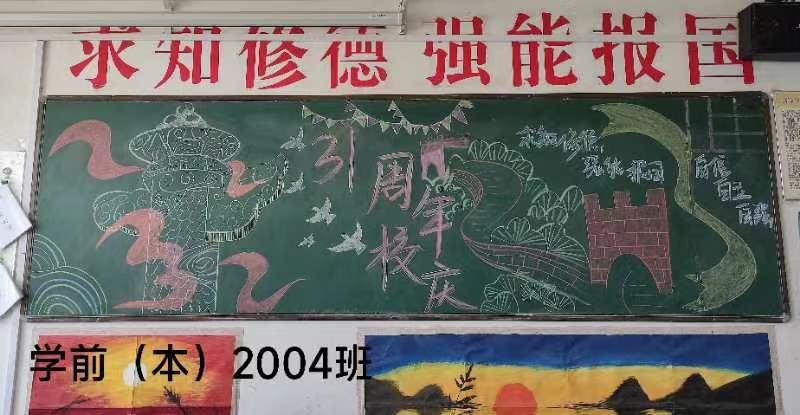 求知修德 强能报国
周年
校庆
求知修德,
强能报国
自信
自立
自强
学前（本）2004班